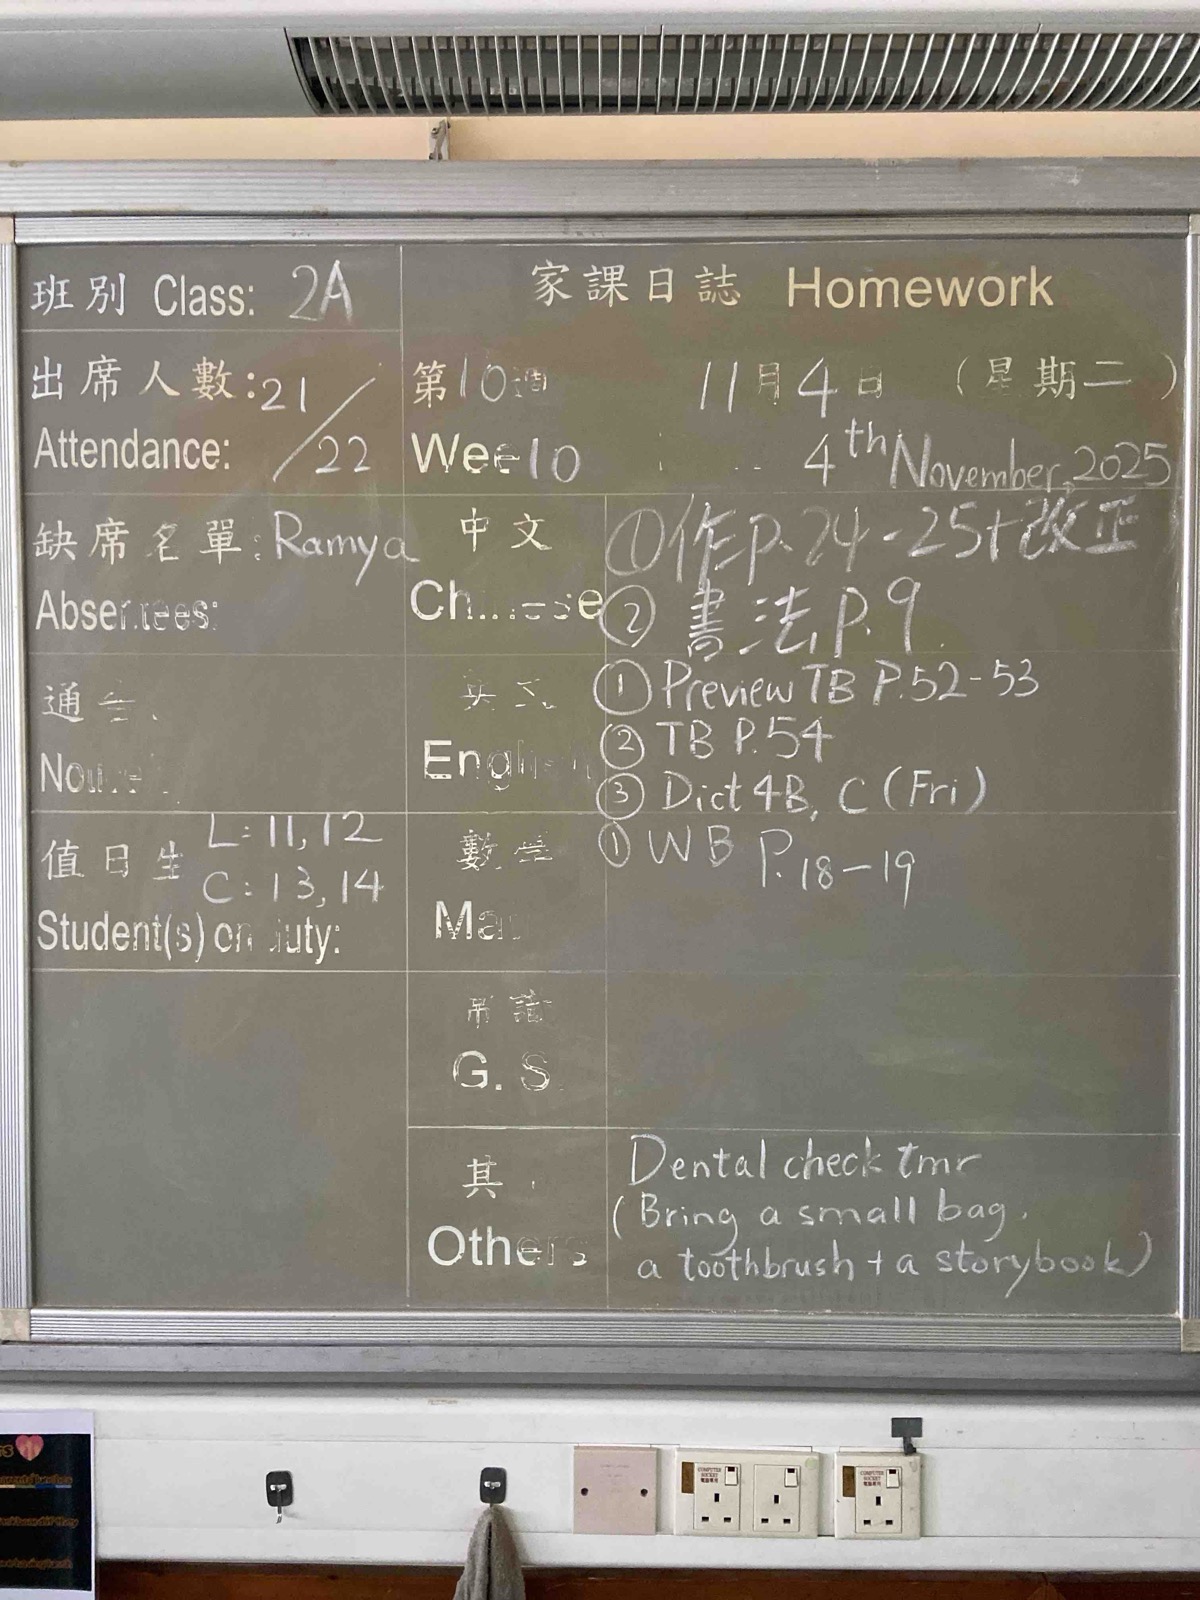 班別 Class: 2A
家課日誌 Homework
出席人數:21/22
Attendance:
第10週 11月4日 (星期二)
Wee10 4th November, 2025
缺席名單: Ramya
Absentees:
中文
Chinese
①作P.24-25+改正
②書法P.9
通告
英文
English
①Preview TB P.52-53
②TB P.54
③Dict 4B, C (Fri)
值日生 L: 11, 12
C: 13, 14
Student(s) on duty:
數學
Ma
①WB P.18-19
常識
G. S.
其
Others
Dental check tmr
(Bring a small bag,
a toothbrush + a storybook)
COMPUTER SOCKET
電腦專用
COMPUTER SOCKET
電腦專用